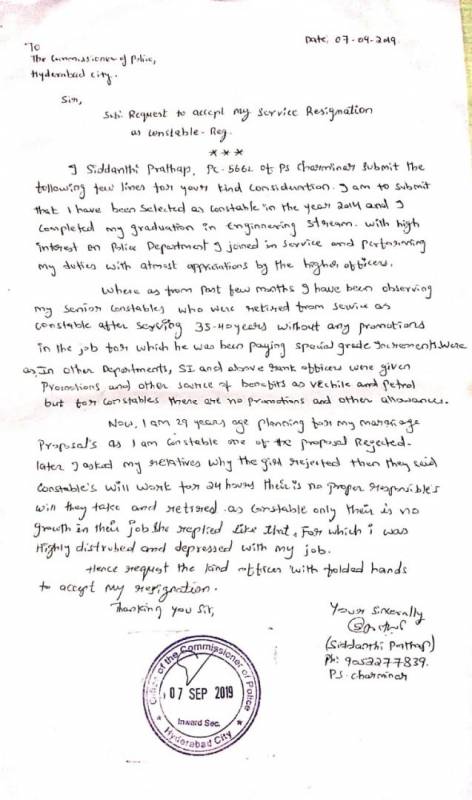 Date: 07-09-2019.
To
The Commissioner of Police,
Hyderabad City.
Sir,
Sub: Request to accept my Service Resignation
as Constable - Reg.
***
I Siddanthi Prathap, PC-5662 of PS Charminar submit the
following few lines for your kind consideration. I am to submit
that I have been selected as constable in the year 2014 and I
completed my graduation in Enginnering Stream. with high
interest on Police Department I joined in service and performing
my duties with atmost appriciations by the higher officers.
Where as from Past few months I have been observing
my senior constables who were retired from service as
constable after serving 35-40 years without any promotions
in the job for which he was been paying special grade increments. Were
as, In other Departments, SI and above rank officers were given
Promotions and other source of benefits as vechile and Petrol
but for constables there are no promotions and other allowances.
Now, I am 29 years age planning for my marriage
Proposal's as I am constable one of the proposal Rejected.
later I asked my relatives why the girl rejected then they said
Constable's will work for 24 hours their is no proper responsible's
will they take and retired as constable only their is no
growth in their job she replied like that, For which i was
Highly distrubed and depressed with my job.
Hence request the kind officer with folded hands
to accept my resignation.
Thanking you Sir,
Your Sincerally
(Siddanthi Prathap)
Ph: 9052277839.
PS. Charminar
Office of the Commissioner of Police
07 SEP 2019
Inward Sec.
Hyderabad City